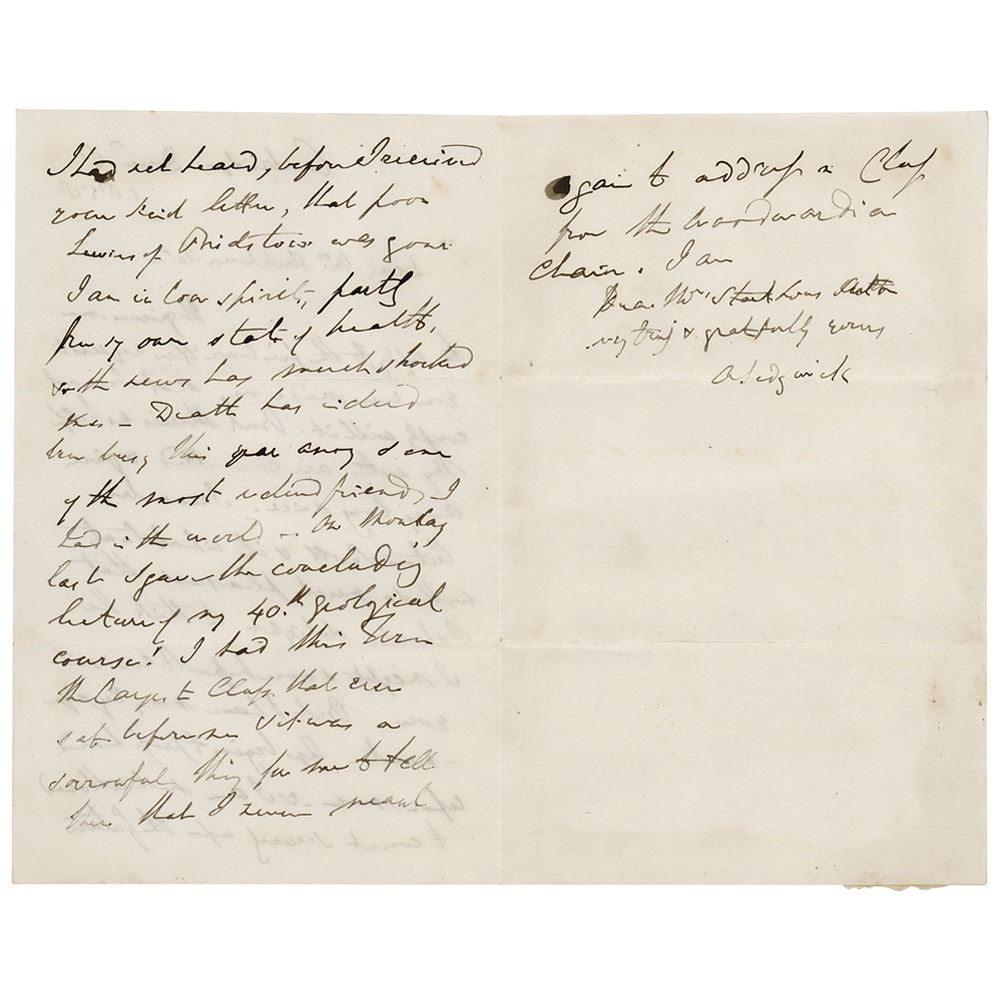 I had not heard, before I received
your kind letter, that poor
of was gone
I am in low spirits, partly
from my own state of health,
& the news has much shocked
me — Death has indeed
been busy this year among some
of the most valued friends I
had in the world — On Monday
last I gave the concluding
lecture of my 40.th geological
course! I had this Term
the largest Class that ever
sat before me & it was a
sorrowful thing for me to tell
them that I never meant
again to address a Class
from the Woodwardian
Chair. I am
Dear Mrs
very truly & gratefully yours
A Sedgwick